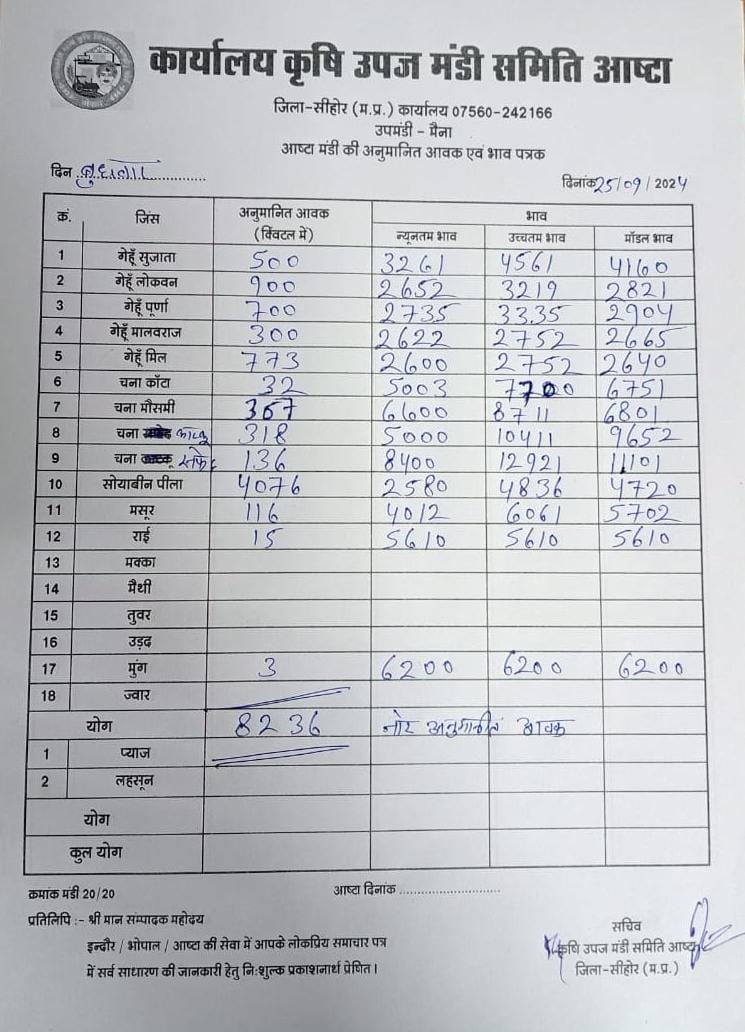 कार्यालय कृषि उपज मंडी समिति आष्टा
जिला-सीहोर (म.प्र.) कार्यालय 07560-242166
उपमंडी - मैना
आष्टा मंडी की अनुमानित आवक एवं भाव पत्रक
दिन बुधवार
दिनांक 25/09/2024
क्रं. जिंस अनुमानित आवक (क्विंटल में) भाव
न्यूनतम भाव उच्चतम भाव मॉडल भाव
1 गेहूँ सुजाता 500 3261 4561 4160
2 गेहूँ लोकवन 900 2652 3219 2821
3 गेहूँ पूर्णा 700 2735 3335 2904
4 गेहूँ मालवराज 300 2622 2752 2665
5 गेहूँ मिल 773 2600 2752 2640
6 चना काँटा 32 5003 7700 6751
7 चना मौसमी 367 6600 8711 6801
8 चना काब्लू 318 5000 10411 9652
9 चना सफेद 136 8400 12921 11101
10 सोयाबीन पीला 4076 2580 4836 4720
11 मसूर 116 4012 6061 5702
12 राई 15 5610 5610 5610
13 मक्का
14 मैथी
15 तुवर
16 उड़द
17 मुंग 3 6200 6200 6200
18 ज्वार
योग 8236 आवक
1 प्याज
2 लहसून
योग
कुल योग
क्रमांक मंडी 20/20 आष्टा दिनांक ............................
प्रतिलिपि :- श्री मान सम्पादक महोदय
इन्दौर / भोपाल / आष्टा की सेवा में आपके लोकप्रिय समाचार पत्र
में सर्व साधारण की जानकारी हेतु नि:शुल्क प्रकाशनार्थ प्रेषित।
सचिव
कृषि उपज मंडी समिति आष्टा
जिला-सीहोर (म.प्र.)